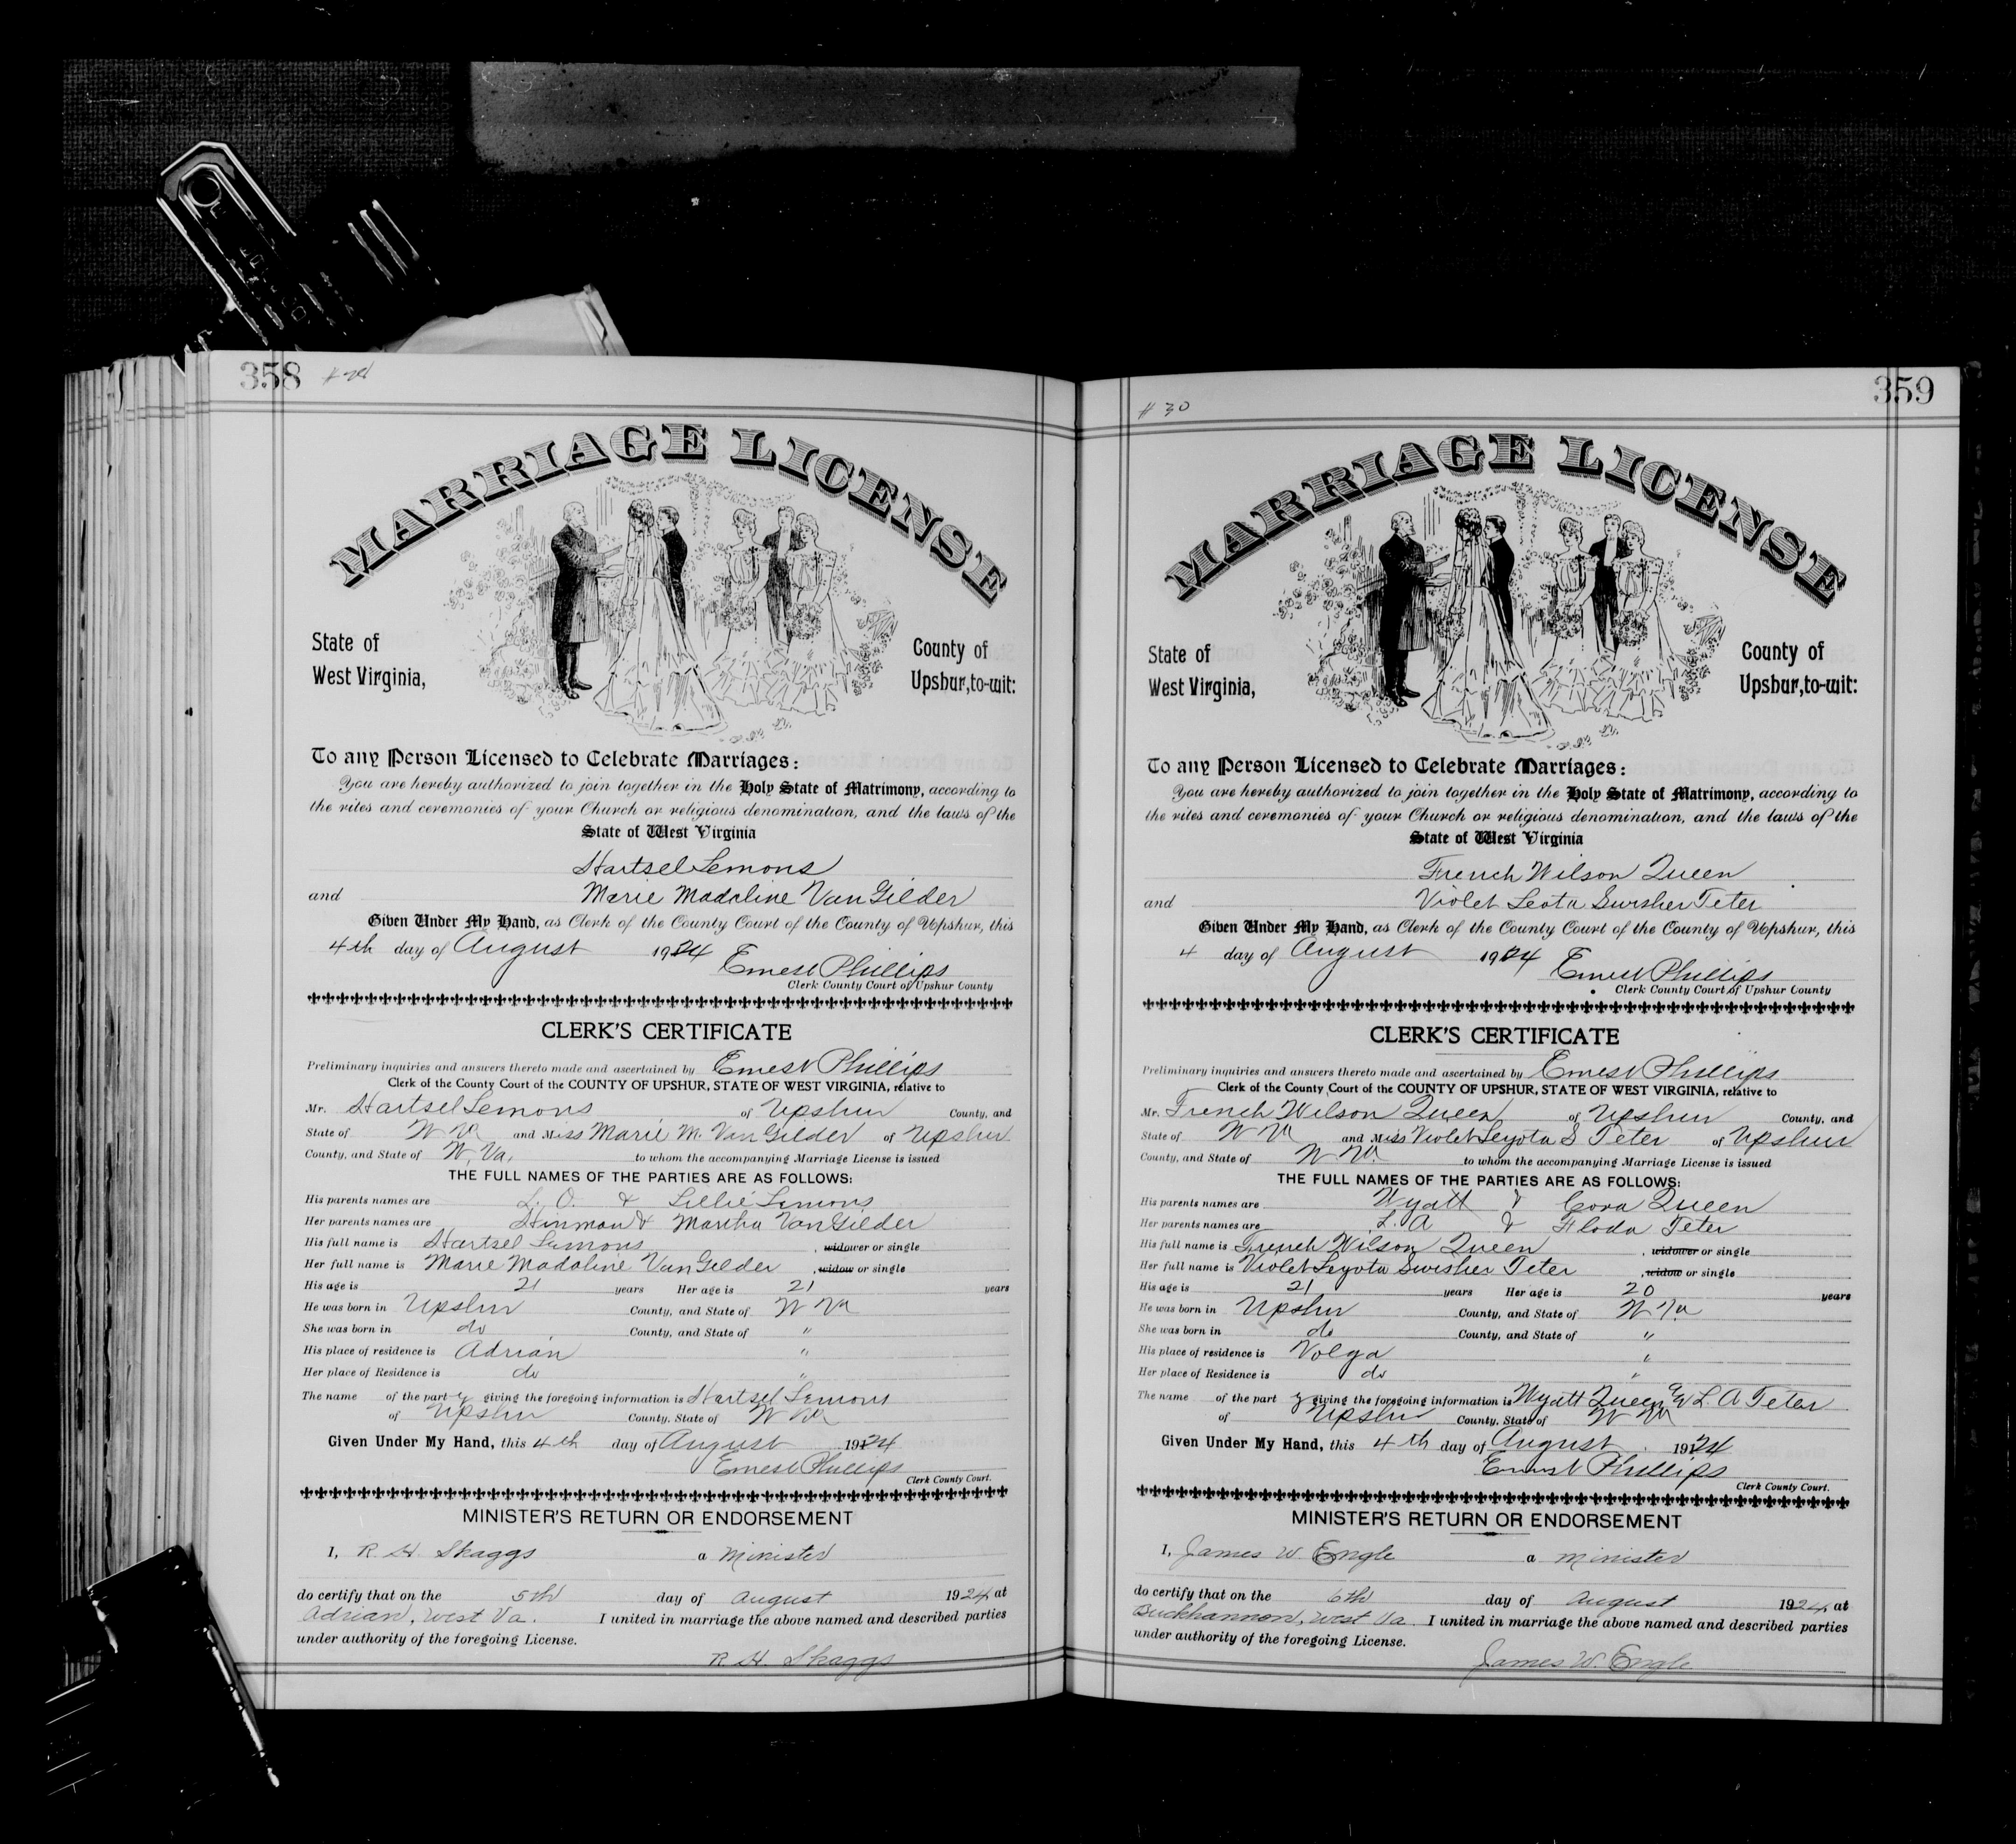 358
MARRIAGE LICENSE
State of
West Virginia,
County of
Upshur, to-wit:
To any Person Licensed to Celebrate Marriages:
You are hereby authorized to join together in the Holy State of Matrimony, according to
the rites and ceremonies of your Church or religious denomination, and the laws of the
State of West Virginia
Hartsel Lemons
and Marie Madaline VanGilder
Given Under My Hand, as Clerk of the County Court of the County of Upshur, this
4th day of August 1924 Ernest Phillips
Clerk County Court of Upshur County
CLERK'S CERTIFICATE
Preliminary inquiries and answers thereto made and ascertained by Ernest Phillips
Clerk of the County Court of the COUNTY OF UPSHUR, STATE OF WEST VIRGINIA, relative to
Mr. Hartsel Lemons of Upshur County, and
State of W Va and Miss Marie M. VanGilder of Upshur
County, and State of W. Va, to whom the accompanying Marriage License is issued
THE FULL NAMES OF THE PARTIES ARE AS FOLLOWS:
His parents names are L. O. & Lillie Lemons
Her parents names are Hinman & Martha VanGilder
His full name is Hartsel Lemons , widower or single
Her full name is Marie Madaline VanGilder , widow or single
His age is 21 years Her age is 21 years
He was born in Upshur County, and State of W Va
She was born in do County, and State of "
His place of residence is Adrian "
Her place of Residence is do "
The name of the party giving the foregoing information is Hartsel Lemons
of Upshur County, State of W Va
Given Under My Hand, this 4th day of August 1924
Ernest Phillips
Clerk County Court.
MINISTER'S RETURN OR ENDORSEMENT
I, R. H. Skaggs a Minister
do certify that on the 5th day of August 1924 at
Adrian, West Va. I united in marriage the above named and described parties
under authority of the foregoing License.
R. H. Skaggs
359
# 30
MARRIAGE LICENSE
State of
West Virginia,
County of
Upshur, to-wit:
To any Person Licensed to Celebrate Marriages:
You are hereby authorized to join together in the Holy State of Matrimony, according to
the rites and ceremonies of your Church or religious denomination, and the laws of the
State of West Virginia
French Wilson Queen
and Violet Leota Swisher Teter
Given Under My Hand, as Clerk of the County Court of the County of Upshur, this
4 day of August 1924 Ernest Phillips
Clerk County Court of Upshur County
CLERK'S CERTIFICATE
Preliminary inquiries and answers thereto made and ascertained by Ernest Phillips
Clerk of the County Court of the COUNTY OF UPSHUR, STATE OF WEST VIRGINIA, relative to
Mr. French Wilson Queen of Upshur County, and
State of W Va and Miss Violet Leyota S Teter of Upshur
County, and State of W Va. to whom the accompanying Marriage License is issued
THE FULL NAMES OF THE PARTIES ARE AS FOLLOWS:
His parents names are Wyatt & Cora Queen
Her parents names are L. A & Floda Teter
His full name is French Wilson Queen , widower or single
Her full name is Violet Leyota Swisher Teter , widow or single
His age is 21 years Her age is 20 years
He was born in Upshur County, and State of W Va.
She was born in do County, and State of "
His place of residence is Volga "
Her place of Residence is do "
The name of the party giving the foregoing information is Wyatt Queen & L. A Teter
of Upshur County, State of W Va
Given Under My Hand, this 4th day of August 1924
Ernest Phillips
Clerk County Court.
MINISTER'S RETURN OR ENDORSEMENT
I, James W. Engle a minister
do certify that on the 6th day of August 1924 at
Buckhannon, West Va. I united in marriage the above named and described parties
under authority of the foregoing License.
James W. Engle